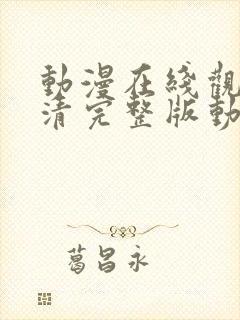 動漫在綫觀
清完整版動
葛昌永